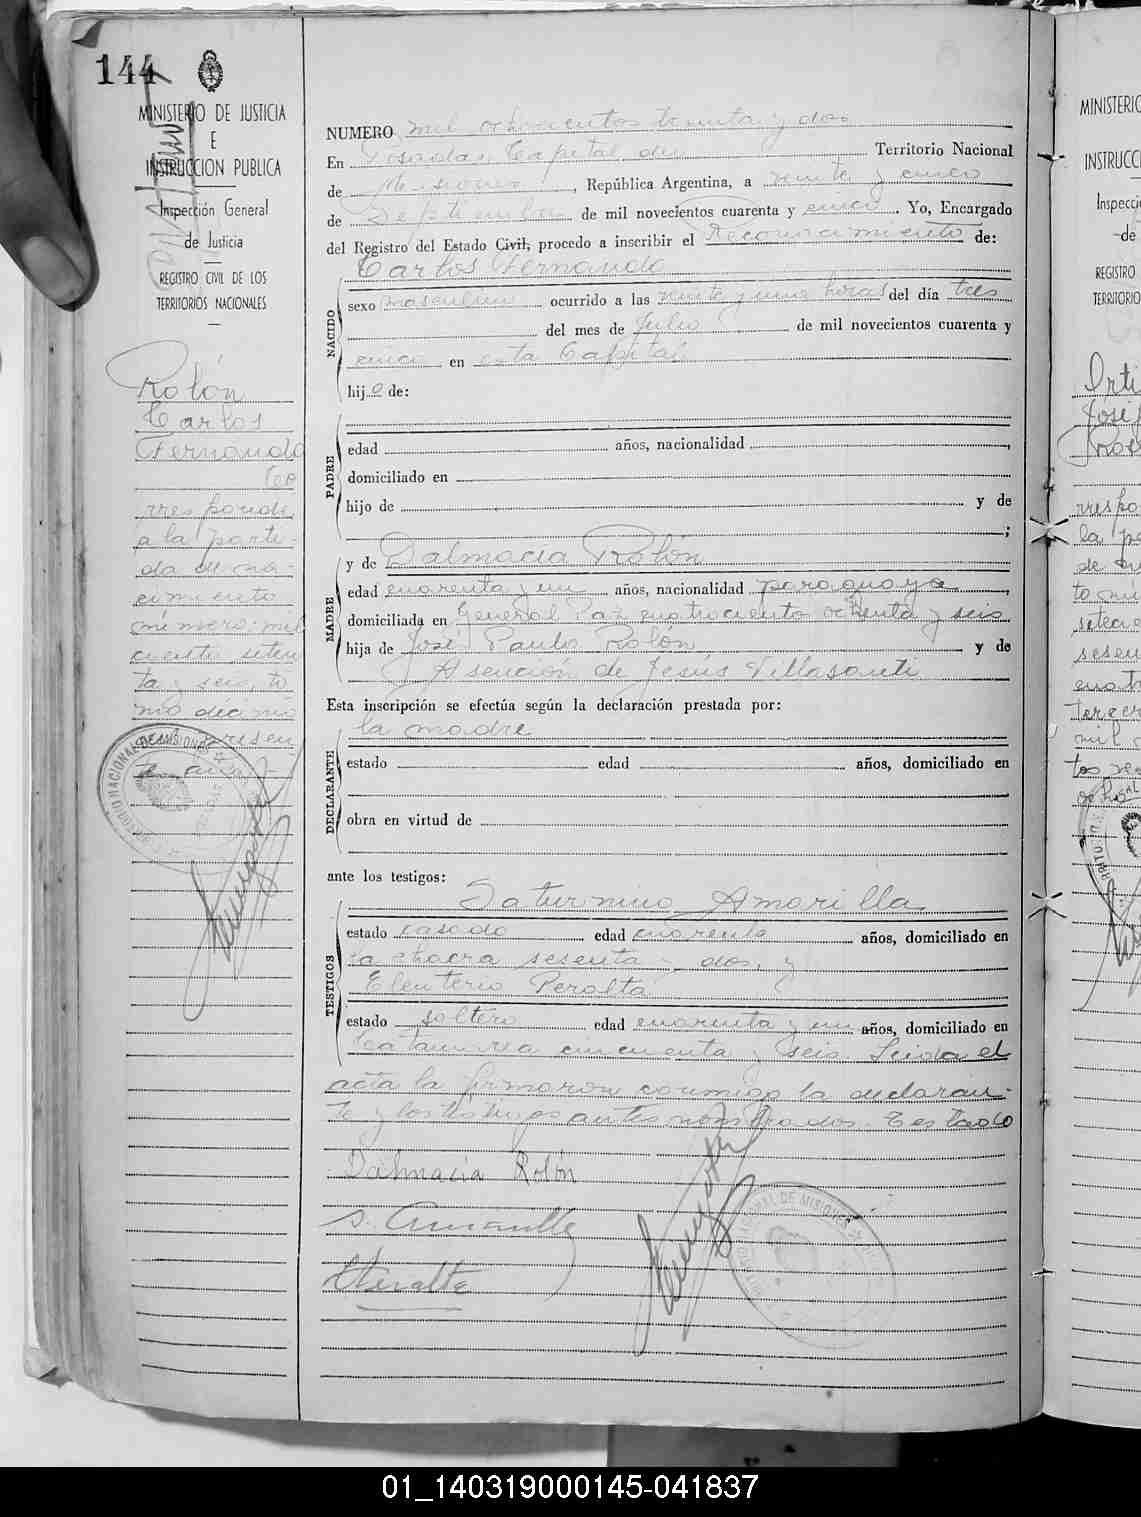 144
MINISTERIO DE JUSTICIA
E
INSTRUCCION PUBLICA
Inspección General
de Justicia
REGISTRO CIVIL DE LOS
TERRITORIOS NACIONALES
Rolón
Carlos
Fernando
Co
rresponde
a la parti-
da de na-
cimiento
número: mil
ciento seten
ta y seis, to
mo décimo
NUMERO mil ochocientos treinta y dos
En Posadas, Capital del Territorio Nacional
de Misiones, República Argentina, a veinte y cinco
de Septiembre de mil novecientos cuarenta y cinco. Yo, Encargado
del Registro del Estado Civil, procedo a inscribir el Reconocimiento de:
Carlos Fernando
NACIDO
sexo masculino ocurrido a las veinte y una horas del día tres
del mes de Julio de mil novecientos cuarenta y
cinco en esta Capital
hijo de:
PADRE
edad años, nacionalidad ,
domiciliado en
hijo de y de
;
MADRE
y de Dalmacia Rolón
edad cuarenta y un años, nacionalidad paraguaya,
domiciliada en General Paz cuatrociento ochenta y seis
hija de José Paulo Rolón y de
Asención de Jesús Villasanti
Esta inscripción se efectúa según la declaración prestada por:
la madre
DECLARANTE
estado edad años, domiciliado en
obra en virtud de
ante los testigos:
TESTIGOS
Saturnino Amarilla
estado casado edad cuarenta años, domiciliado en
la chacra sesenta y dos, y
Eleuterio Peralta
estado soltero edad cuarenta y un años, domiciliado en
Catamarca cincuenta y seis. Leida el
acta la firmaron conmigo la declaran-
te y los testigos antes nombrados. Testado
Dalmacia Rolón
S. Amarilla
EPeralta
MINISTERIO
INSTRUCC
Inspecci
de
REGISTRO
TERRITORI
Orti
José
01_140319000145-041837